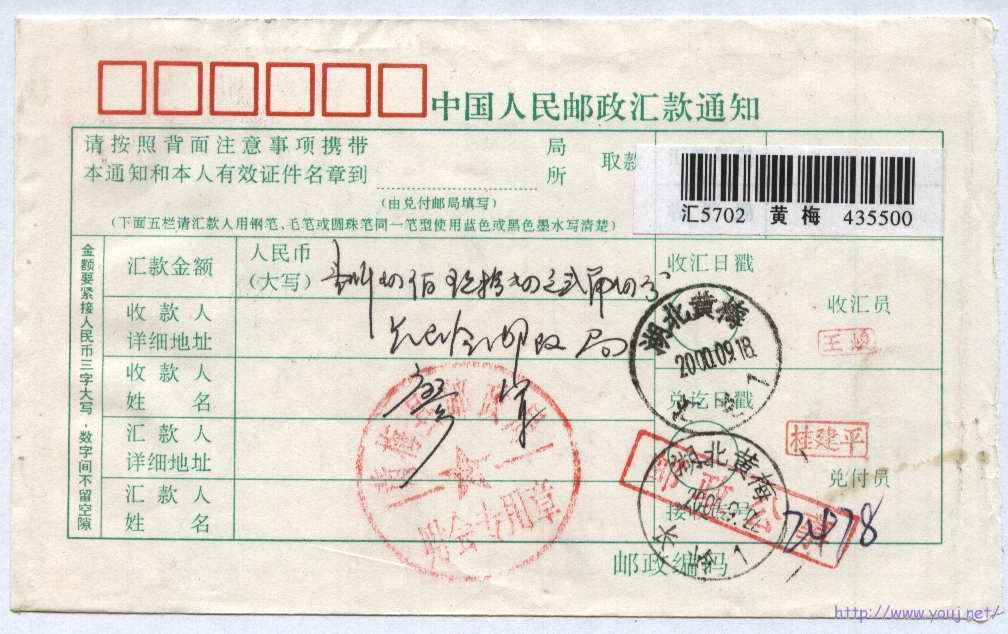 中国人民邮政汇款通知
请按照背面注意事项携带
本通知和本人有效证件名章到
局
所
取款
(由兑付邮局填写)
(下面五栏请汇款人用钢笔、毛笔或圆珠笔同一笔型使用蓝色或黑色墨水写清楚)
汇5702 黄梅 435500
金额要紧接人民币三字大写·数字间不留空隙
汇款金额
人民币
(大写)
收汇日戳
收汇员
收款人
详细地址
邮政局
湖北黄梅
2000.09.18
1
收款人
姓名
兑讫日戳
桂建平
汇款人
详细地址
兑付员
湖北黄梅
1
汇款人
姓名
专用章
邮政公事
7478
邮政编码
http://www.youj.net/